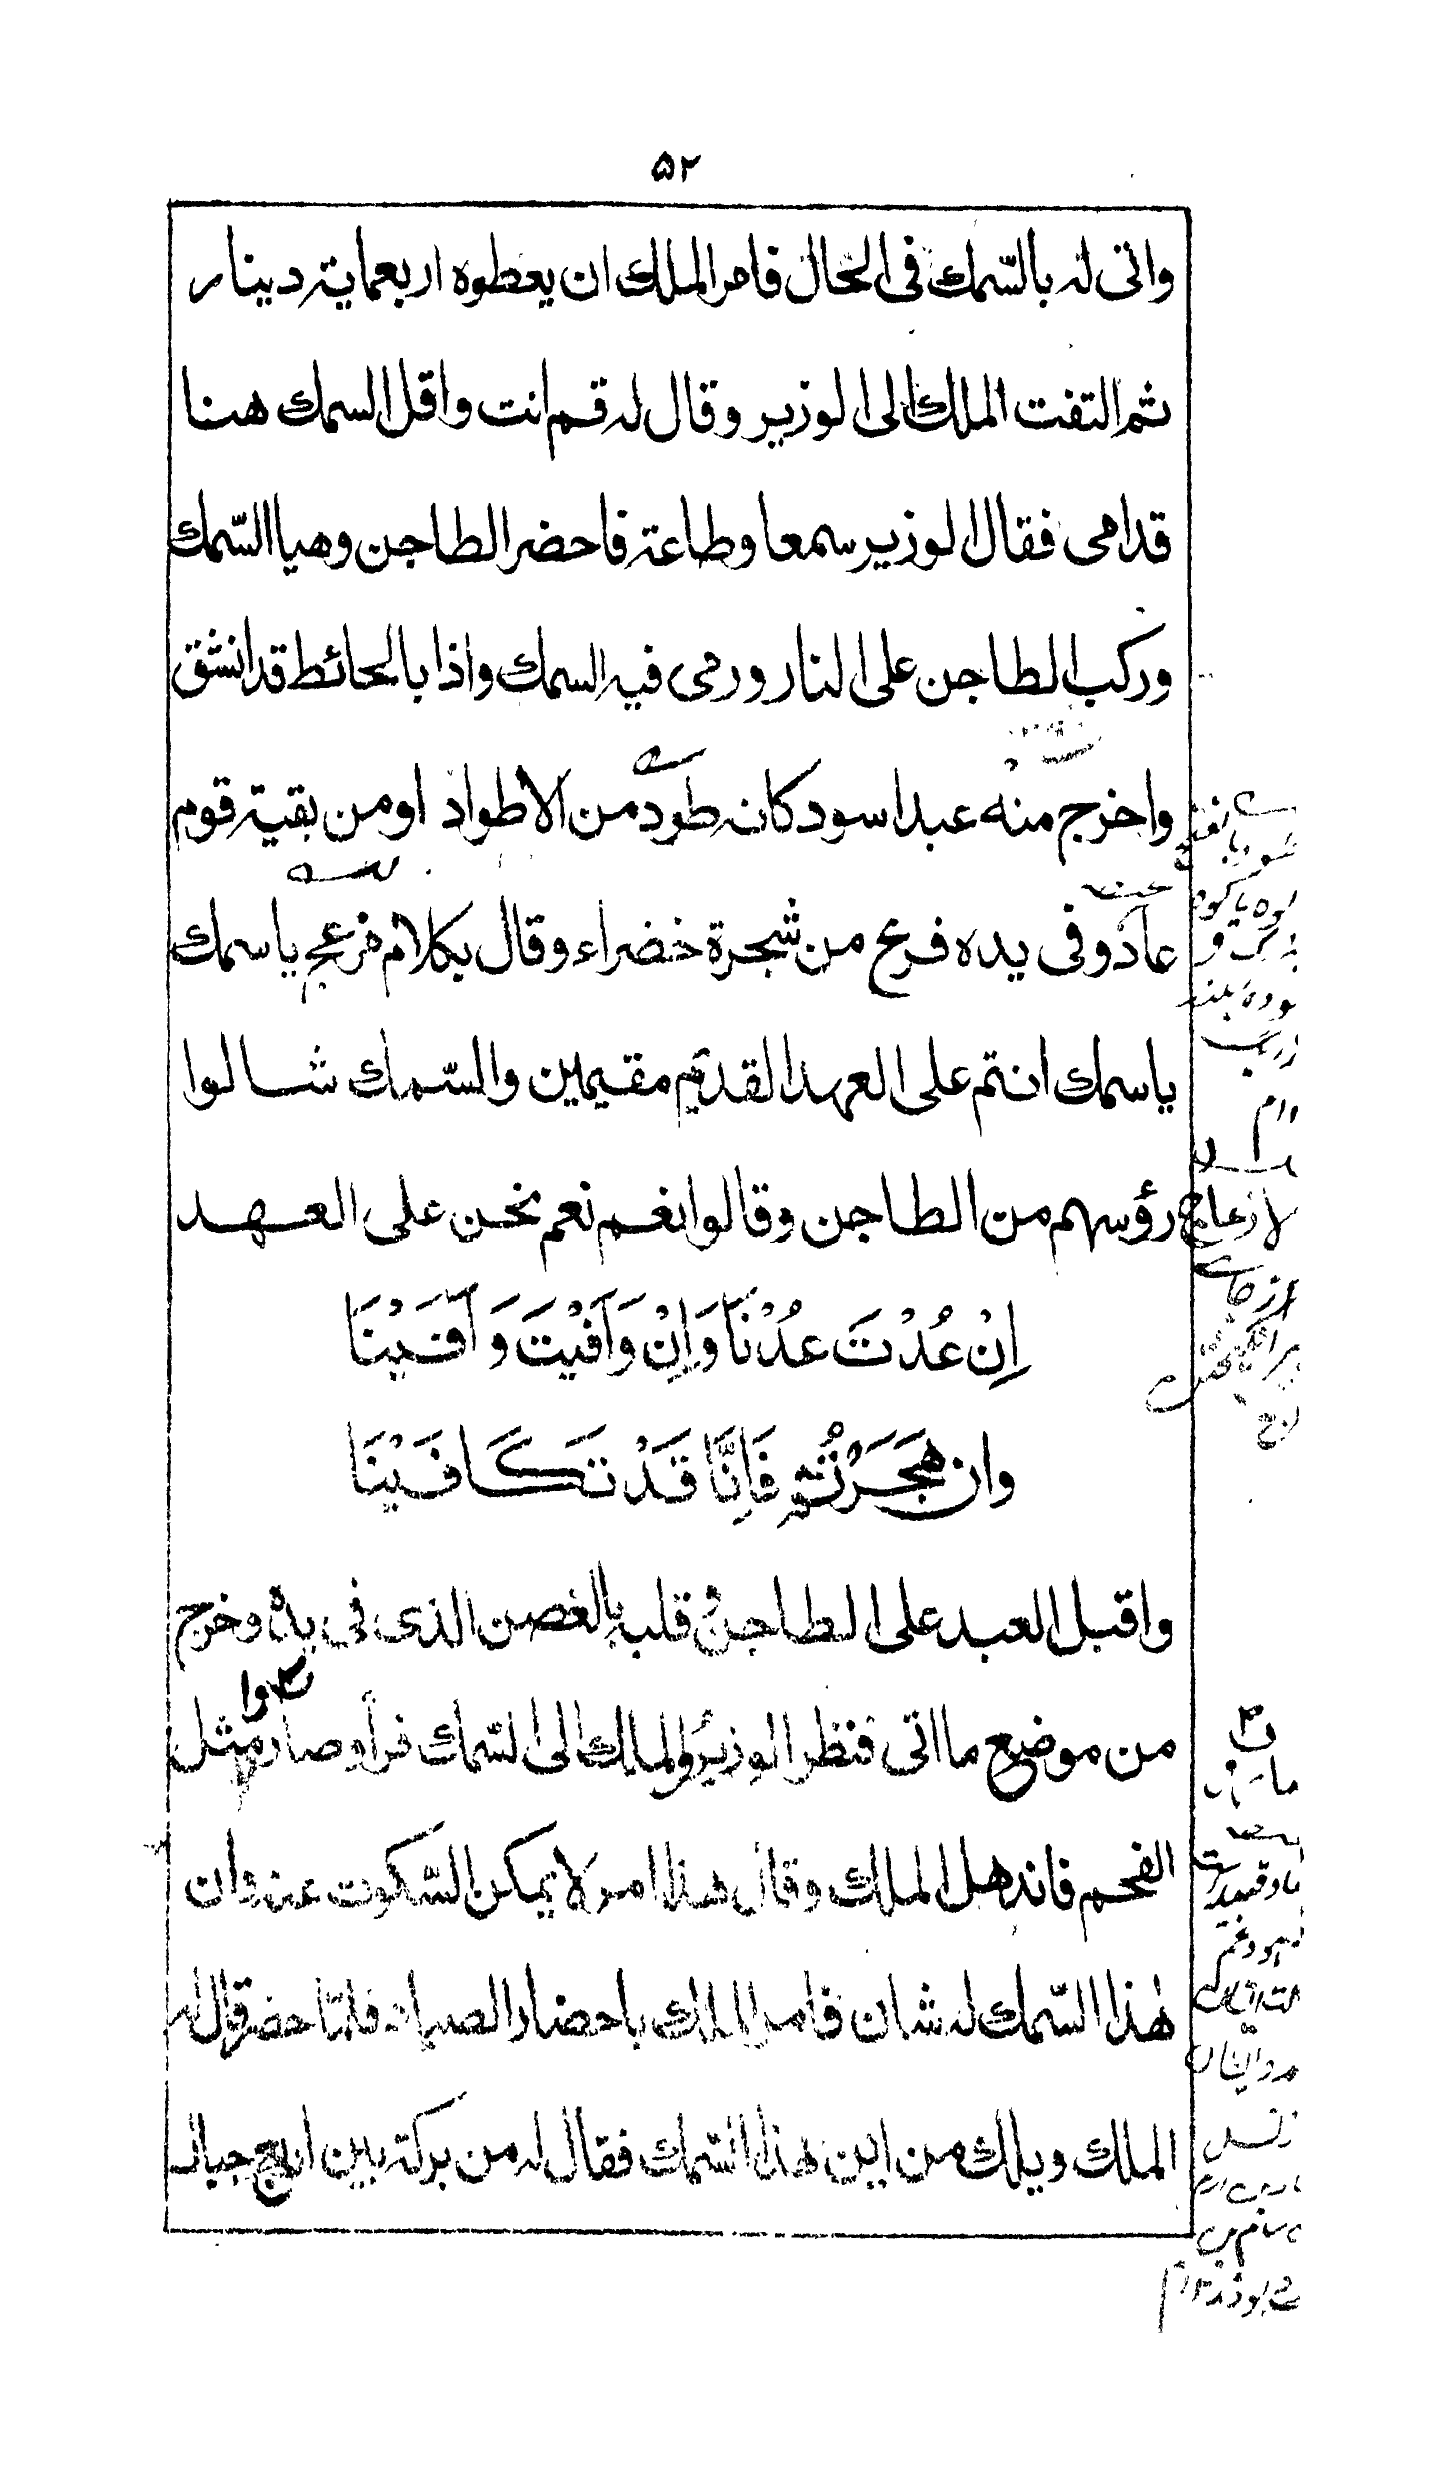 ۵۲
واتى له بالسّمك فى الحال فامر الملك ان يعطوه اربعماية دينار
ثم التفت الملك الى الوزير وقال له قم انت واقل السمك هنا
قدامى فقال الوزير سمعا وطاعة فاحضر الطاجن وهيا السّمك
وركب الطاجن على النار ورمى فيه السمك واذا بالحائط قد انشق
واخرج منه عبد اسود كانه طود من الاطواد او من بقية قوم
عاد وفى يده فرع من شجرة خضراء وقال بكلام مزعج يا سمك
يا سمك انتم على العهد القديم مقيمين والسّمك شالوا
رؤسهم من الطاجن وقالوا نعم نعم نحن على العهد
اِنْ عُدْتَ عُدْنَا وَاِنْ وَافَيْتَ وَافَيْنَا
وان هَجَرْتُمْ فَاِنَّا قَدْ تَكَافَيْنَا
واقبل العبد على الطاجن قلبه بالغصن الذى فى يده وخرج
من موضع ما اتى فنظر الوزير والملك الى السّمك فرأوه صار مثل
الفحم فاندهل الملك وقال هذا امر لا يمكن السّكوت عنه وان
هٰذا السّمك له شان فامر الملك باحضار الصياد فلمّا حضر قال له
الملك ويلك من اين هذا السّمك فقال له من بركة بين اربع جبال